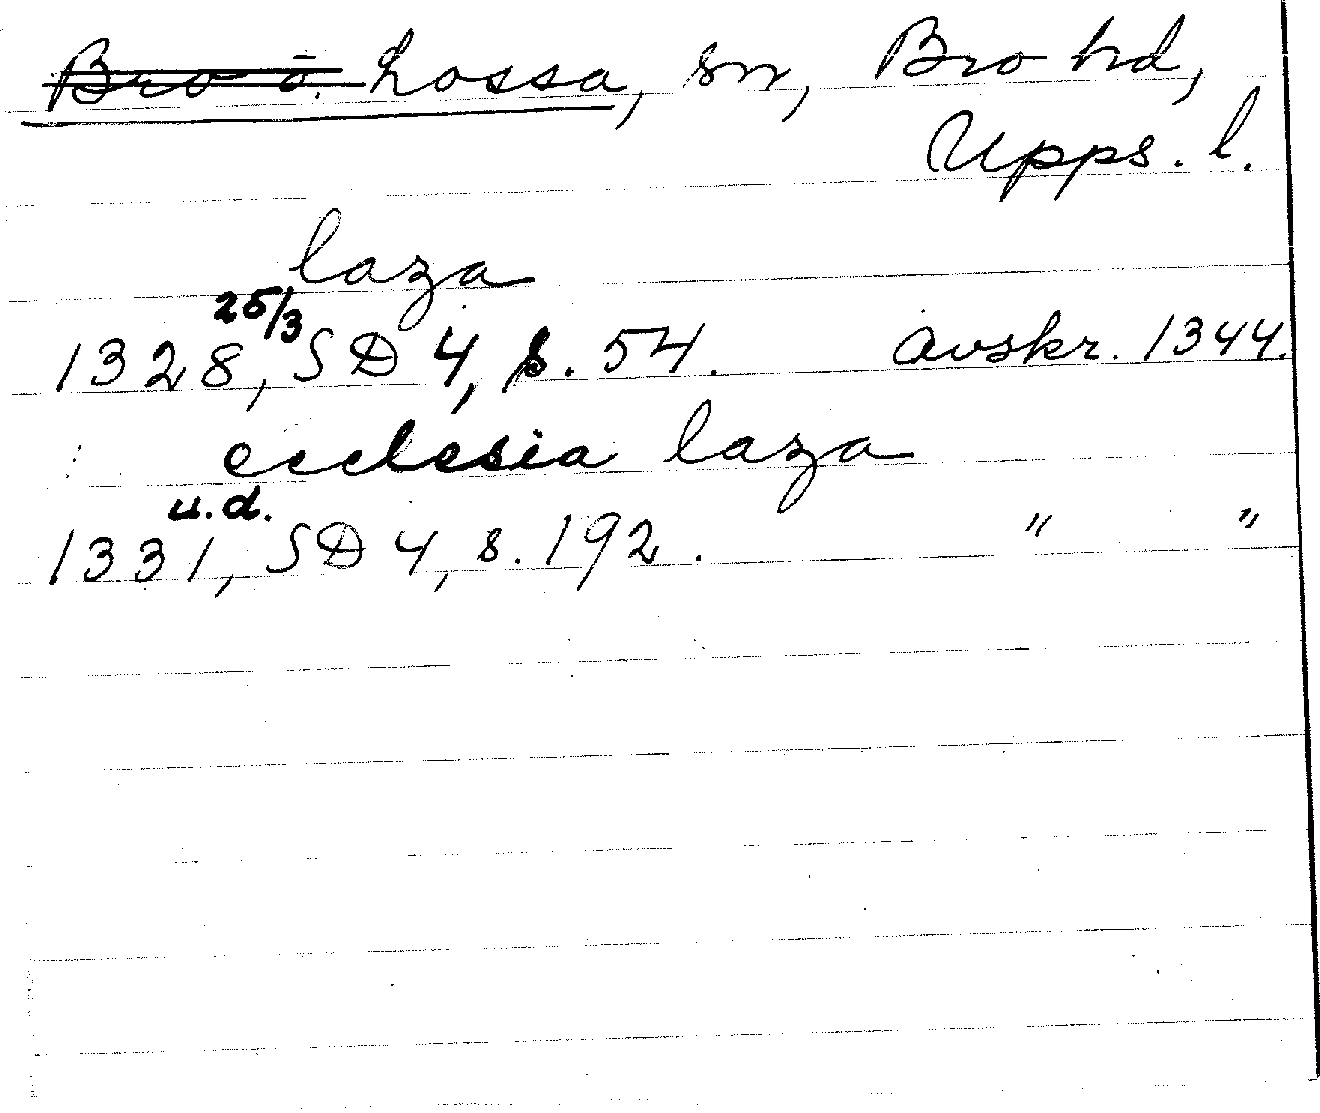 Bro o. Lossa, sn, Bro hd,
Upps. l.
laza
1328, 25/3 SD 4, s. 54. avskr. 1344.
ecclesia laza
1331, u.d. SD 4, s. 192. " "